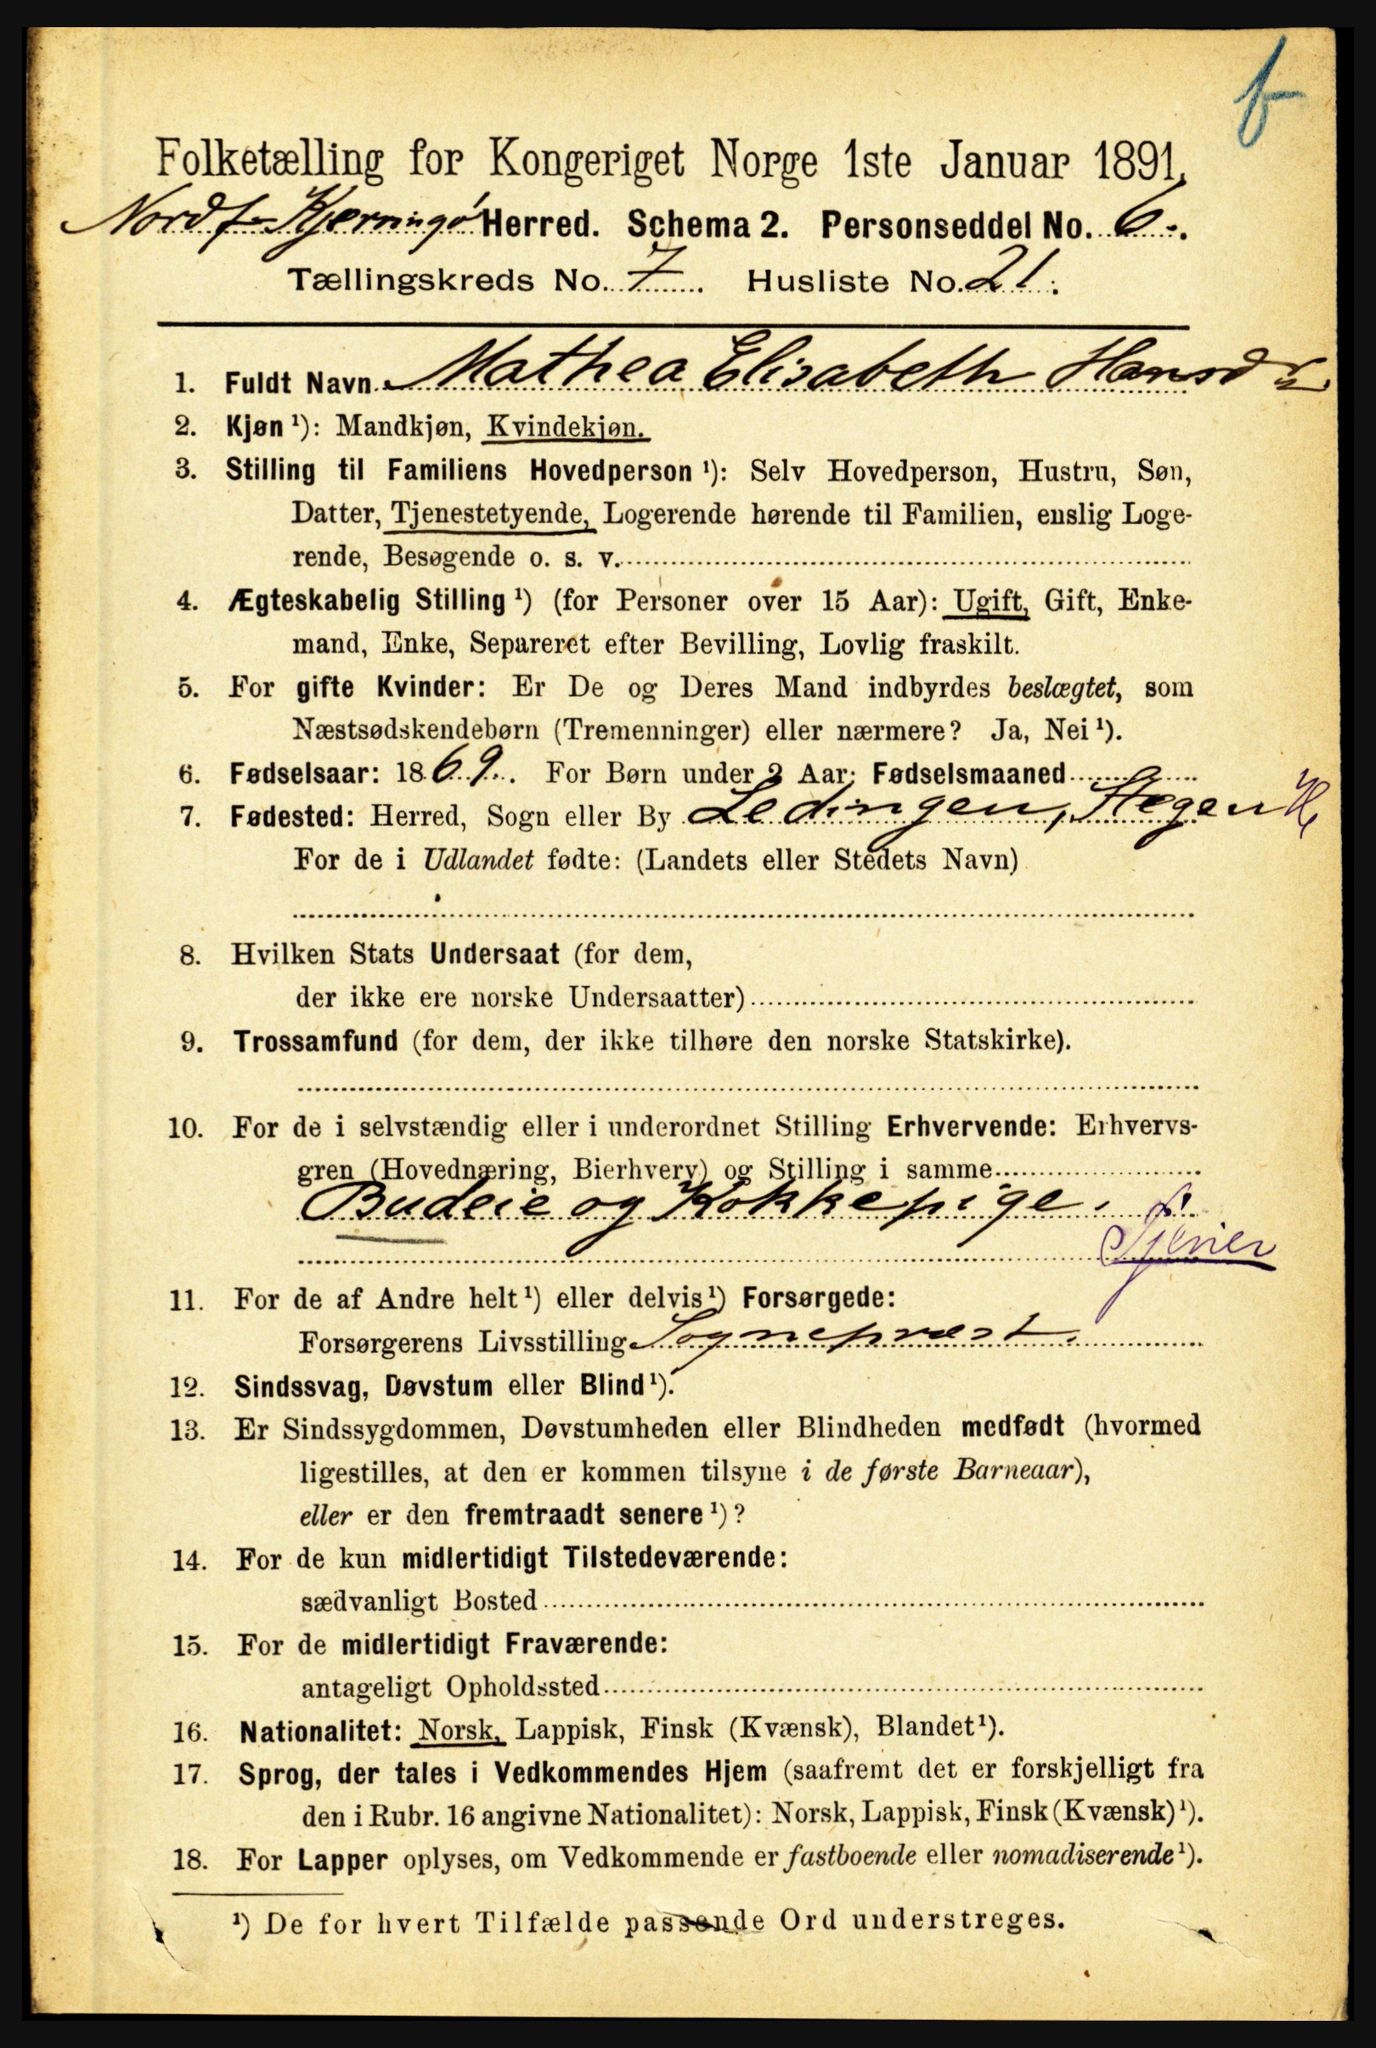 Folketælling for Kongeriget Norge 1ste Januar 1891.
Nordf- Kjerringø Herred. Schema 2. Personseddel No. 6.
Tællingskreds No. 7. Husliste No. 21.
1. Fuldt Navn Mathea Elisabeth Hansdr
2. Kjøn ¹): Mandkjøn, Kvindekjøn.
3. Stilling til Familiens Hovedperson ¹): Selv Hovedperson, Hustru, Søn,
Datter, Tjenestetyende, Logerende hørende til Familien, enslig Loge-
rende, Besøgende o. s. v.
4. Ægteskabelig Stilling ¹) (for Personer over 15 Aar): Ugift, Gift, Enke-
mand, Enke, Separeret efter Bevilling, Lovlig fraskilt.
5. For gifte Kvinder: Er De og Deres Mand indbyrdes beslægtet, som
Næstsødskendebørn (Tremenninger) eller nærmere? Ja, Nei ¹).
6. Fødselsaar: 1869. For Børn under 2 Aar: Fødselsmaaned
7. Fødested: Herred, Sogn eller By Ledingen, Stegen
For de i Udlandet fødte: (Landets eller Stedets Navn)
8. Hvilken Stats Undersaat (for dem,
der ikke ere norske Undersaatter)
9. Trossamfund (for dem, der ikke tilhøre den norske Statskirke).
10. For de i selvstændig eller i underordnet Stilling Erhvervende: Erhvervs-
gren (Hovednæring, Bierhverv) og Stilling i samme
Budeie og Kokkepige.
11. For de af Andre helt ¹) eller delvis ¹) Forsørgede:
Forsørgerens Livsstilling Sogneprest.
12. Sindssvag, Døvstum eller Blind ¹).
13. Er Sindssygdommen, Døvstumheden eller Blindheden medfødt (hvormed
ligestilles, at den er kommen tilsyne i de første Barneaar),
eller er den fremtraadt senere ¹)?
14. For de kun midlertidigt Tilstedeværende:
sædvanligt Bosted
15. For de midlertidigt Fraværende:
antageligt Opholdssted
16. Nationalitet: Norsk, Lappisk, Finsk (Kvænsk), Blandet ¹).
17. Sprog, der tales i Vedkommendes Hjem (saafremt det er forskjelligt fra
den i Rubr. 16 angivne Nationalitet): Norsk, Lappisk, Finsk (Kvænsk) ¹).
18. For Lapper oplyses, om Vedkommende er fastboende eller nomadiserende ¹).
¹) De for hvert Tilfælde passende Ord understreges.